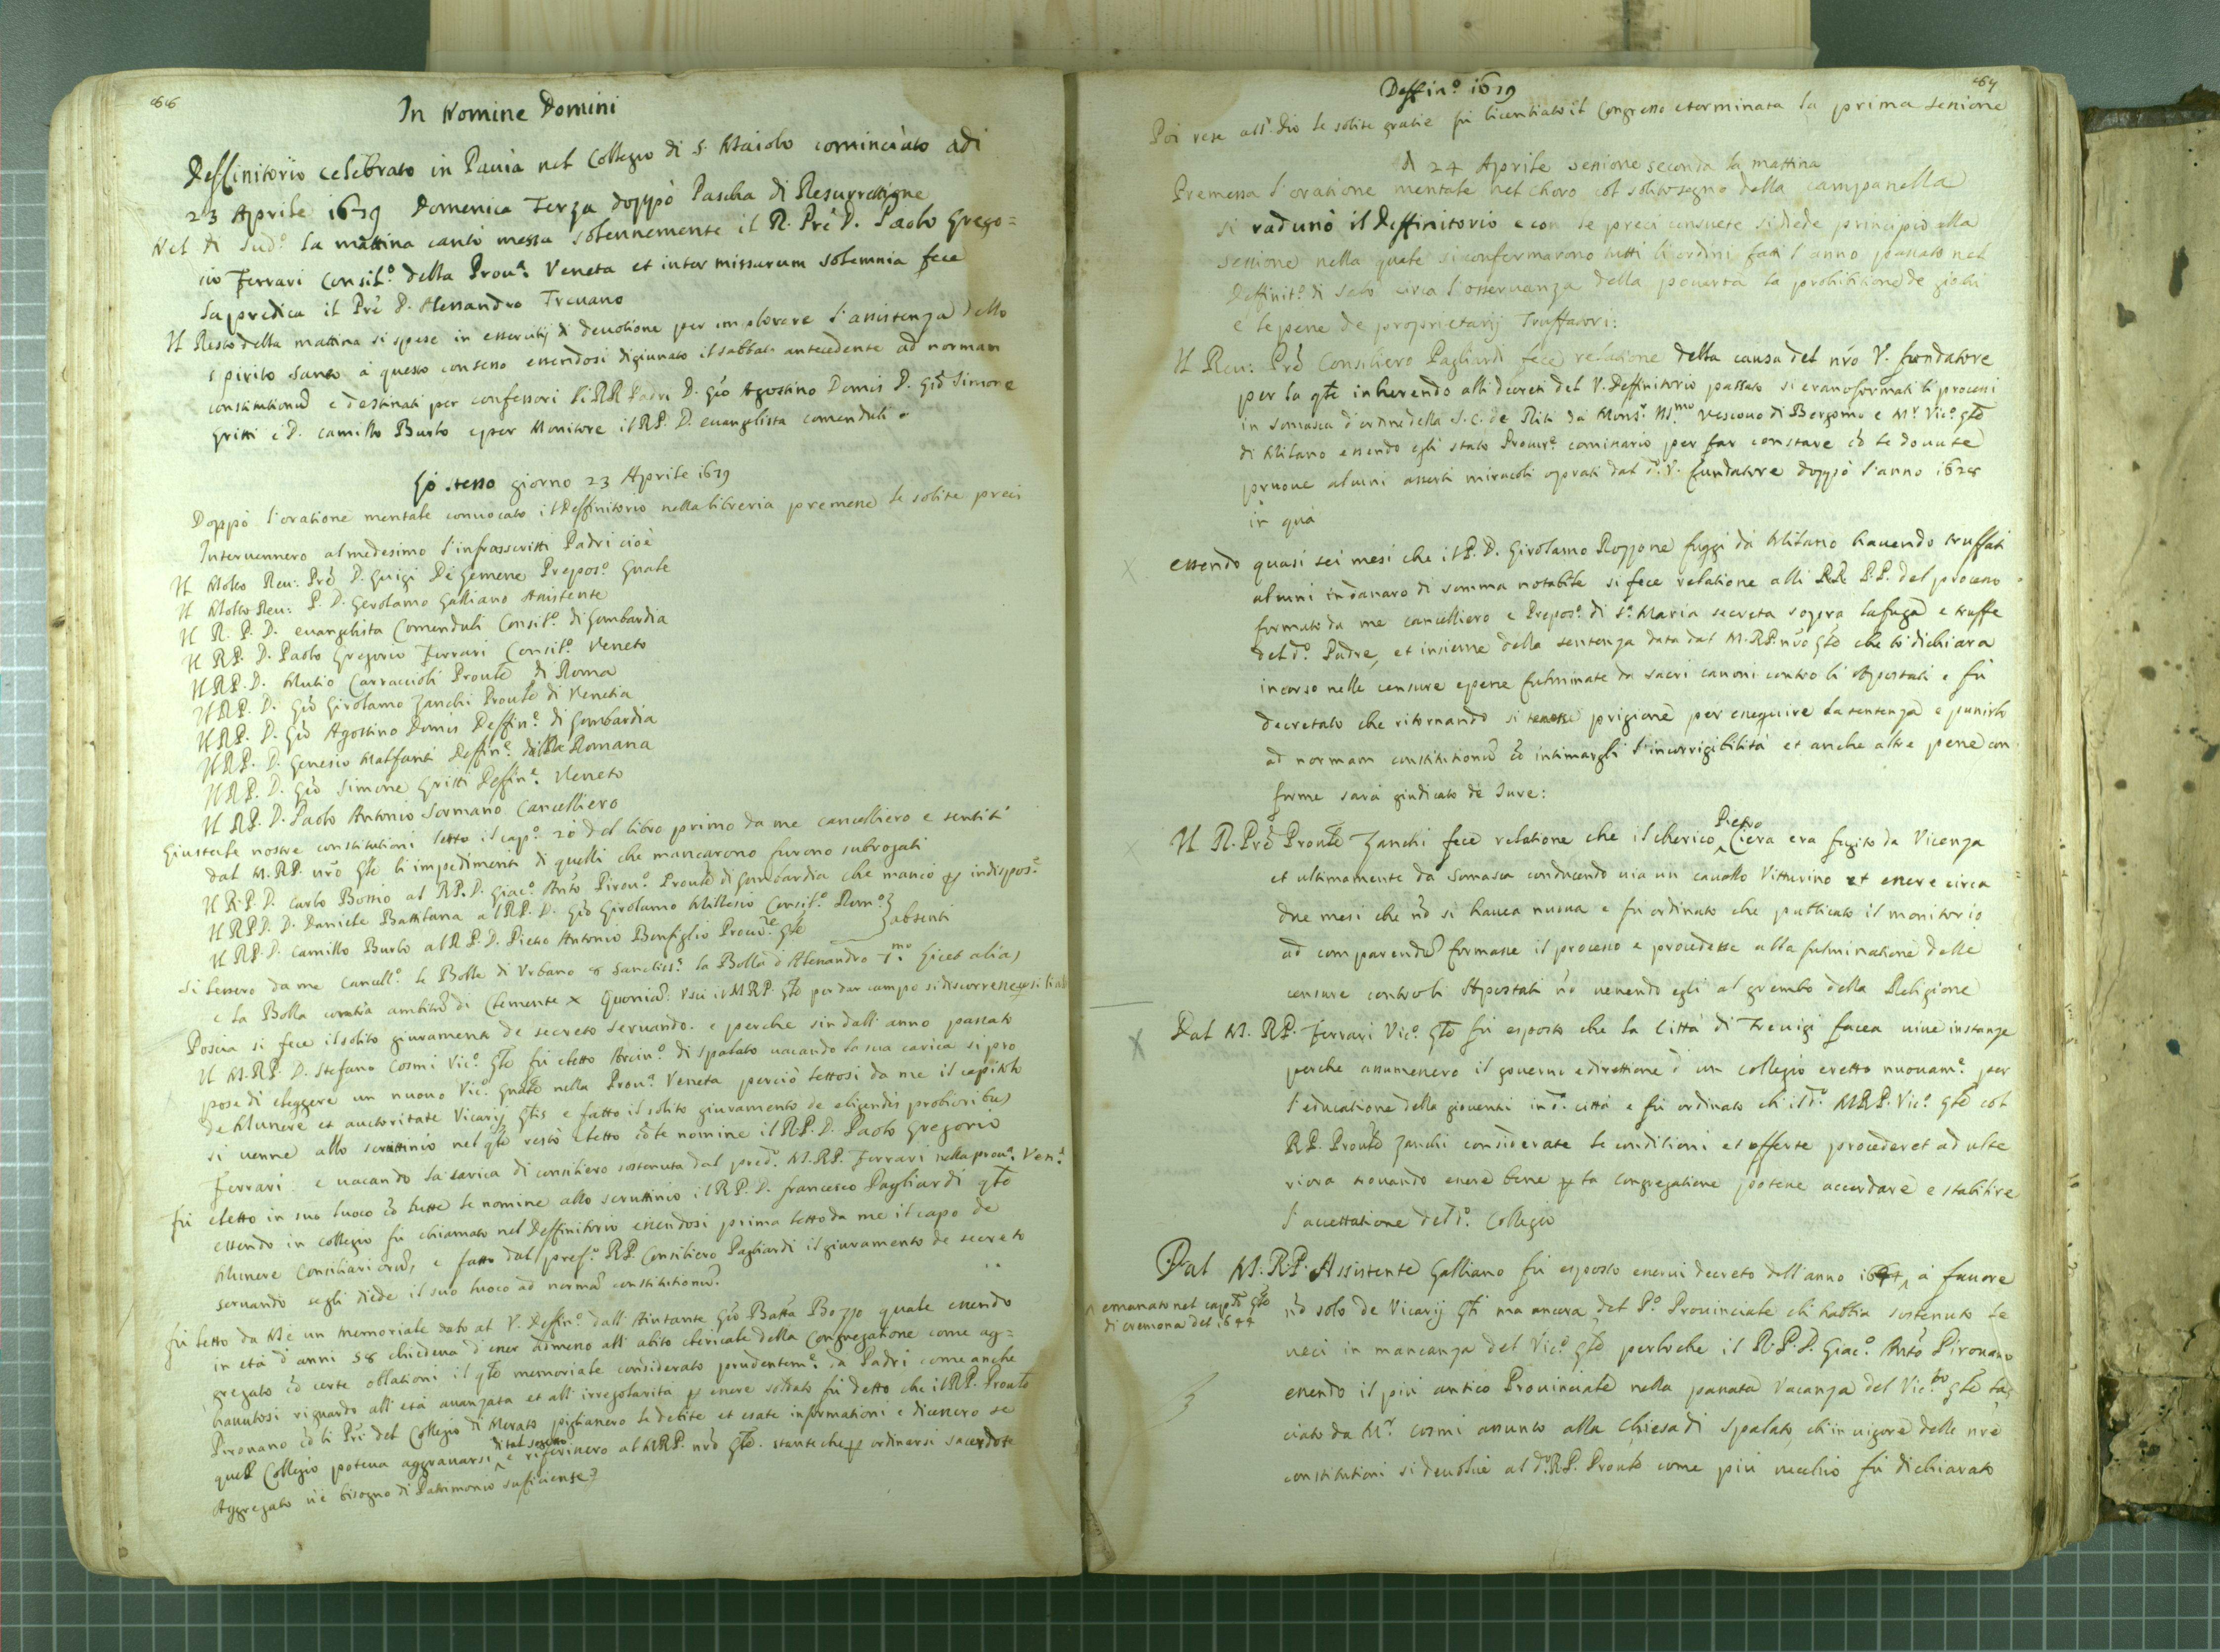 66
In Nomine Domini
Deffinitorio celebrato in Pauia nel Collegio di S. Maiolo cominciato adi
23 Aprile 1679 Domenica Terza doppò Pascha di Resurrettione
Nel dì sud.º la mattina cantò messa solennemente il R. Prē D. Paolo Grego=
rio Ferrari Consil.º della Prou.ª Veneta et inter missarum solemnia fece
la predica il Prē D. Alessandro Treuano
Il Resto della mattina si spese in essercitij di deuotione per implorare l'assistenza dello
spirito santo à questo consesso essendosi digiunato il sabbato antecedente ad normam
constitutionū e destinati per confessori li RR Padri D. Giō Agostino Domis D. Giō Simone
Gritti e D. Camillo Burlo e per Monitore il RP. D. euangelista comenduli
Lo stesso giorno 23 Aprile 1679
Doppò l'oratione mentale conuocato il Deffinitorio nella libreria premesse le solite preci
Interuennero al medesimo l'infrascritti Padri cioè
Il Molto Reu: Prē D. Luigi De Lemene Prepos.º Gnale
Il Molto Reu: P. D. Gerolamo Galliano Assistente
Il R. P. D. euangelista Comenduli Consil.º di Lombardia
Il RP. D. Paolo Gregorio Ferrari Consil.º Veneto
Il RP. D. Mutio Carraccioli Prouīle di Roma
Il RP. D. Giō Girolamo Zanchi Prouīle di Venetia
Il RP. D. Giō Agostino Domis Deffin.e di Lombardia
Il RP. D. Genesio Malfanti Deffin.e della Romana
Il RP. D. Giō Simone Gritti Deffin.e Veneto
Il RP. D. Paolo Antonio Sormano Cancelliero
Giusta le nostre constitutioni letto il cap.º 20 del libro primo da me cancelliero e sentiti
dal M.RP. nrō Gle li impedimenti di quelli che mancarono furono subrogati
Il R.P. D. Carlo Bossio al RP. D. Giac.º Antō Pirou.º Prouīle di Lombardia che mancò p indispos.e
Il RP D. D. Daniele Battilana al RP. D. Giō Girolamo Millesio Consil.º Rom.º
Il RP. D. Camillo Burlo al R P. D. Pietro Antonio Bonfiglio Procu.re Gle
absenti
Si lessero da me Cancell.º le Bolle di Vrbano 8 Sanctiss.ª la Bolla d'Alessandro 7.mo Licet alias
e la Bolla contra ambitū di Clemente X Quoniā. Vscì il MRP. Gle per dar campo si discorresse
Poscia si fece il solito giuramento de secreto seruando. e perche sin dall'anno passato
Il M.RP. D. Stefano Cosmi Vic.º Gle fù eletto Arciu.º di Spalato uacando la sua carica si pro
pose di eleggere un nuouo Vic.º Gnale nella Prou.ª Veneta perciò lettosi da me il capitolo
de Munere et auctoritate Vicarij Glis e fatto il solito giuramento de eligendis probioribus
si uenne allo scruttinio nel qle restò eletto cō le nomine il RP. D. Paolo Gregorio
Ferrari e uacando la carica di consiliero sostenuta dal pred.º M.RP. Ferrari nella prou.ª Ven.ª
fù eletto in suo luoco cō tutte le nomine allo scruttinio il RP. D. Francesco Pagliardi qle
essendo in collegio fù chiamato nel Deffinitorio essendosi prima letto da me il capo de
Munere Consiliariorū, e fatto dal pref.º RP. Consiliero Pagliardi il giuramento de secreto
seruando segli diede il suo luoco ad normā constitutionū.
fù letto da Me un memoriale dato al V. Deffin.º dall'Aiutante Giō Batta Bozzo quale essendo
in età d'anni 58 chiedeua d'esser admesso all'abito clericale della Congregatione come ag=
gregato cō certe oblationi il qle memoriale considerato prudentem.e da Padri come anche
hauutosi riguardo all'età auanzata et all'irregolarità p essere soldato fù detto che il RP. Prouīle
Pironano cō li Prī del Collegio di Merato pigliassero le debite et esate informationi e dicessero se
quell Collegio poteua aggrauarsi di tal soggetto e riferissero al MRP. nrō Gle. stante che p ordinarsi sacerdote
Aggregato u'è bisogno di Patrimonio sufficiense
Deffin.º 1679
67
Poi rese all'. Dio le solite gratie fù licentiato il Congresso e terminata la prima sessione
A 24 Aprile sessione seconda la mattina
Premessa l'oratione mentale nel choro col solito segno della campanella
si radunò il Deffinitorio e con le preci consuete si diede principio alla
sessione nella quale si confermarono tutti li ordini fatti l'anno passato nel
Deffinit.º di Salò circa l'osseruanza della pouertà la prohibitione de giochi
e le pene de proprietarij Truffatori:
Il Reu: Prē Consiliero Pagliardi fece relatione della causa del nrō V. fundatore
per la qle inherendo alli decreti del V. Deffinitorio passato si erano formati li processi
in somasca d'ordine della S.C. de Riti da Mons.r Ill.mo Vescouo di Bergomo e M.r Vic.º gle
di Milano essendo egli stato Procur.e comissario per far constare cō le douute
pruoue alcuni asserti miracoli oprati dal d.º V. fundatore doppò l'anno 1628
in quà
essendo quasi sei mesi che il P. D. Girolamo Rozzone fuggì da Milano hauendo truffati
alcuni in danaro di somma notabile si fece relatione alli RR. P.P. del processo
formato da me cancelliero e Prepos.º di S.ª Maria secreta sopra la fuga e truffe
del d.º Padre, et insieme della sentenza data dal M.RP. nrō Gle che lo dichiara
incorso nelle censure e pene fulminate da sacri canoni contro li Apostati e fù
decretato che ritornando si tenesse prigione per eseguire la sentenza e punirlo
ad normam constitutionū cō intimargli l'incorrigibilità et anche altre pene con
forme sarà giudicato de Iure:
Il R. Prē Prouīle Zanchi fece relatione che il cherico Pietro Ciera era fugito da Vicenza
et ultimamente da Somasca conducendo uia un cauallo Vitturino et essere circa
due mesi che nō si hauea nuoua e fù ordinato che publicato il monitorio
ad comparendū formasse il processo e procedesse alla fulminatione delle
censure contro li Apostati nō uenendo egli al grembo della Religione
Dal M. RP. Ferrari Vic.º Gle fù esposto che la Città di Treuigi facea uiue instanze
perche assumessero il gouerno e direttione d'un collegio eretto nuouam.e per
l'educatione della giouentù in d.ª città e fù ordinato ch'il d.º MRP. Vic.º Gle col
RP. Prouīle Zanchi considerate le conditioni et offerte procederet ad ulte
riora trouando essere bene p la congregatione potesse accordare e stabilire
l'accettatione del d.º Collegio
Dal M.R.P. Assistente Galliano fù esposto esserui decreto dell'anno à fauore
emanato nel cap.lo Gle
di Cremona del 1644
nō solo de Vicarij Gli ma ancora del P.º Prouinciale ch'habbia sostenuto le
ueci in mancanza del Vic.º Gle perloche il R.P.D. Giac.º Antō Pironano
essendo il più antico Prouinciale nella passata Vacanza del Vic.to Gle las
ciato da M.r Cosmi assunto alla Chiesa di Spalato, ch'in uigore delle nrē
constitutioni si deuoluè al d.º RP. Prouīle come più uecchio fù dichiarato